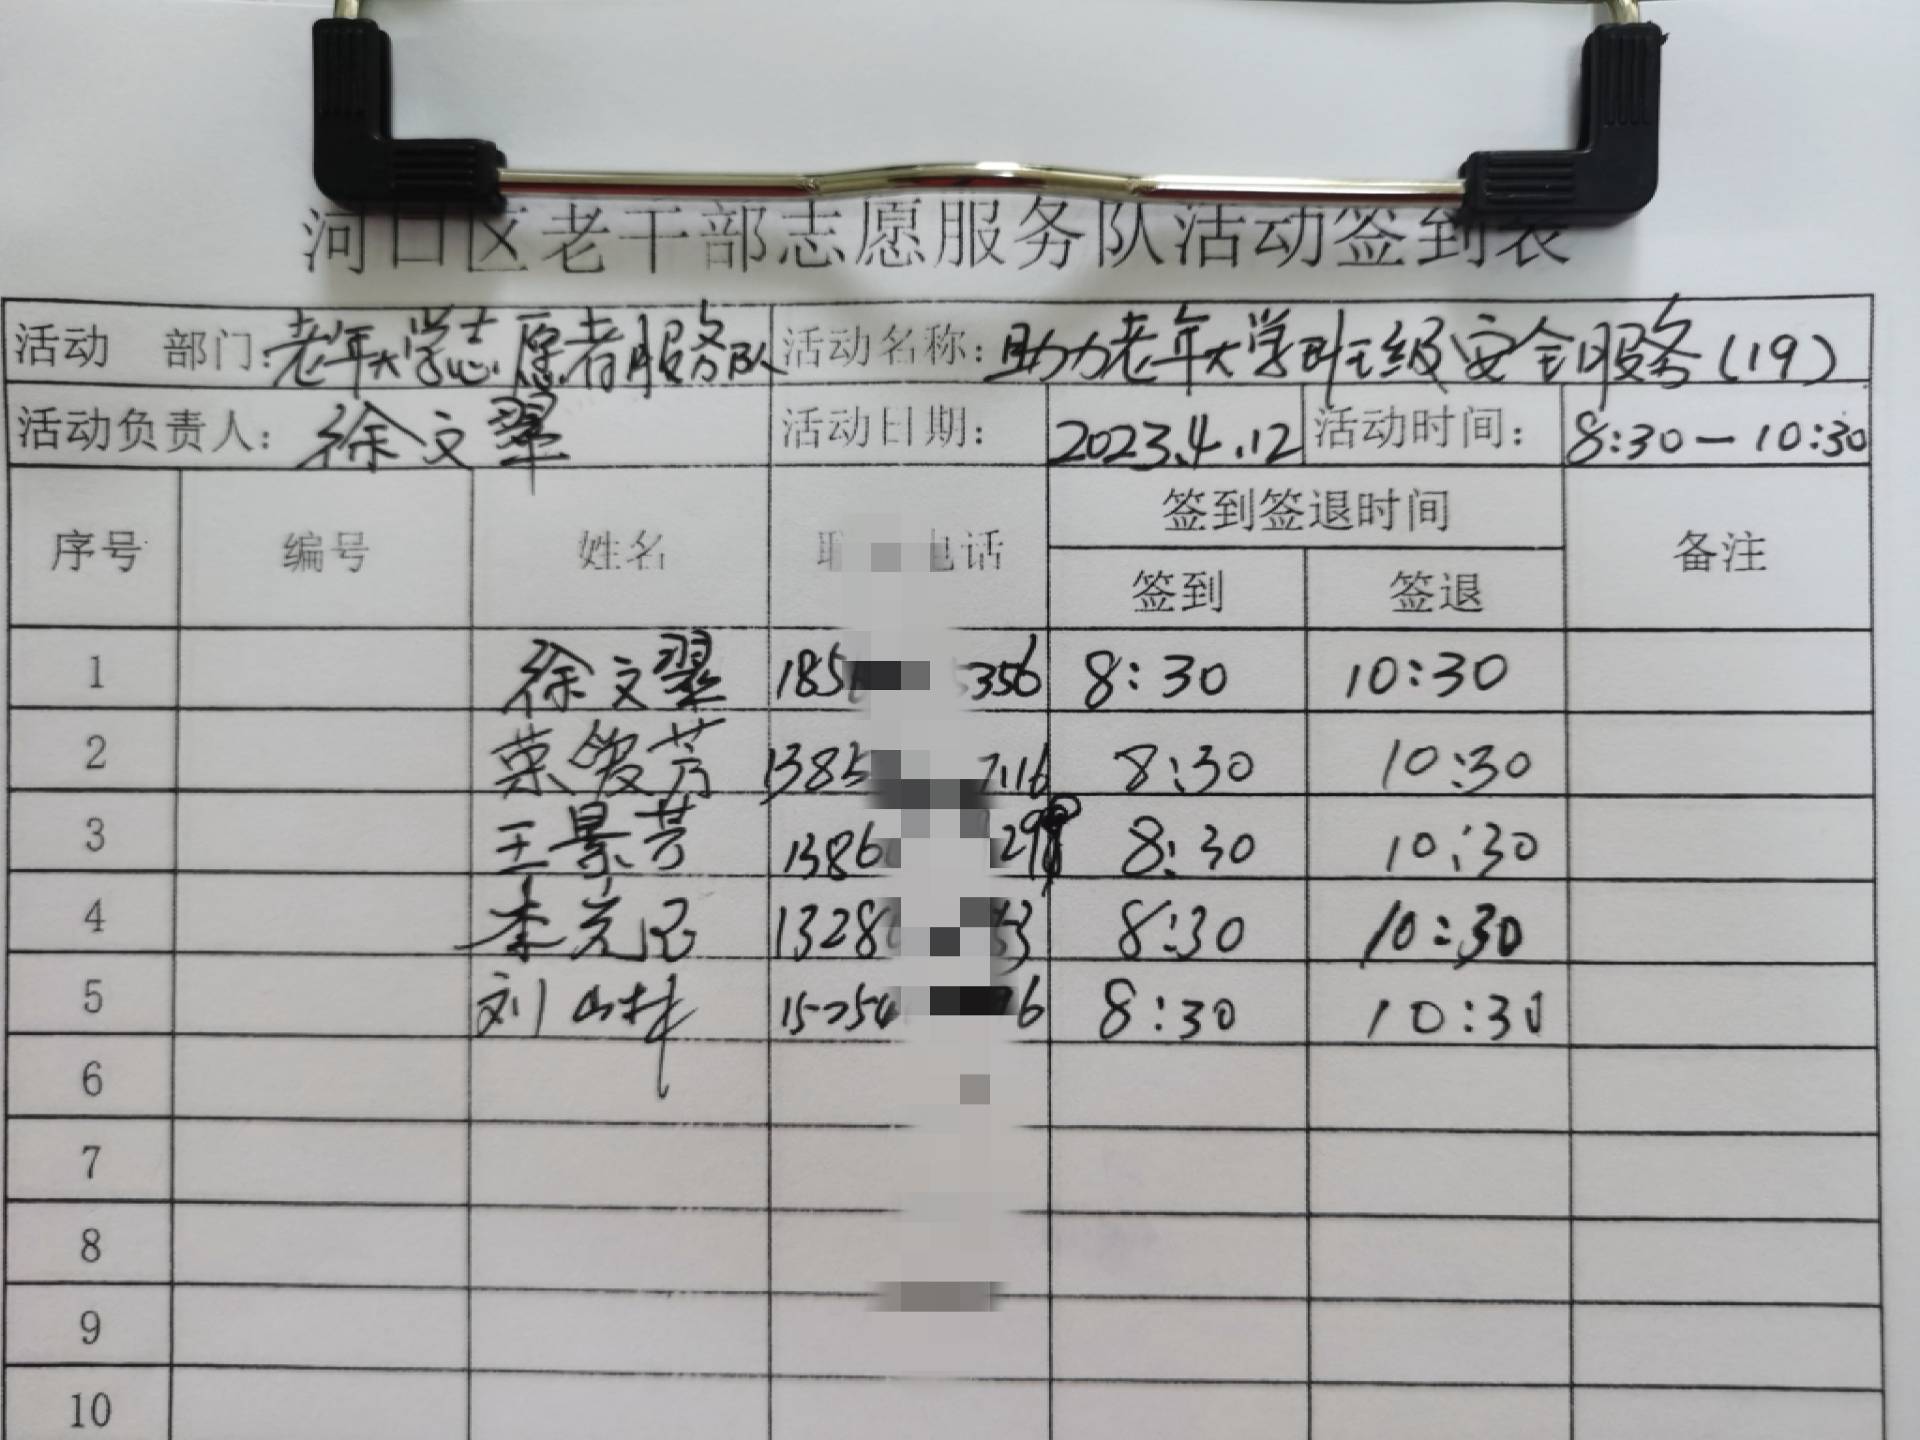 河口区老干部志愿服务队活动签到表
活动 部门:老年大学志愿者服务队 活动名称:助力老年大学班级安全服务(19)
活动负责人:徐文翠 活动日期: 2023.4.12 活动时间: 8:30—10:30
序号 编号 姓名 电话 签到签退时间 备注
签到 签退
1 徐文翠 185 356 8:30 10:30
2 荣俊芳 1385 7116 8:30 10:30
3 王景芳 1386 29 8:30 10:30
4 李光民 1328 3 8:30 10:30
5 刘山林 15254 6 8:30 10:30
6
7
8
9
10